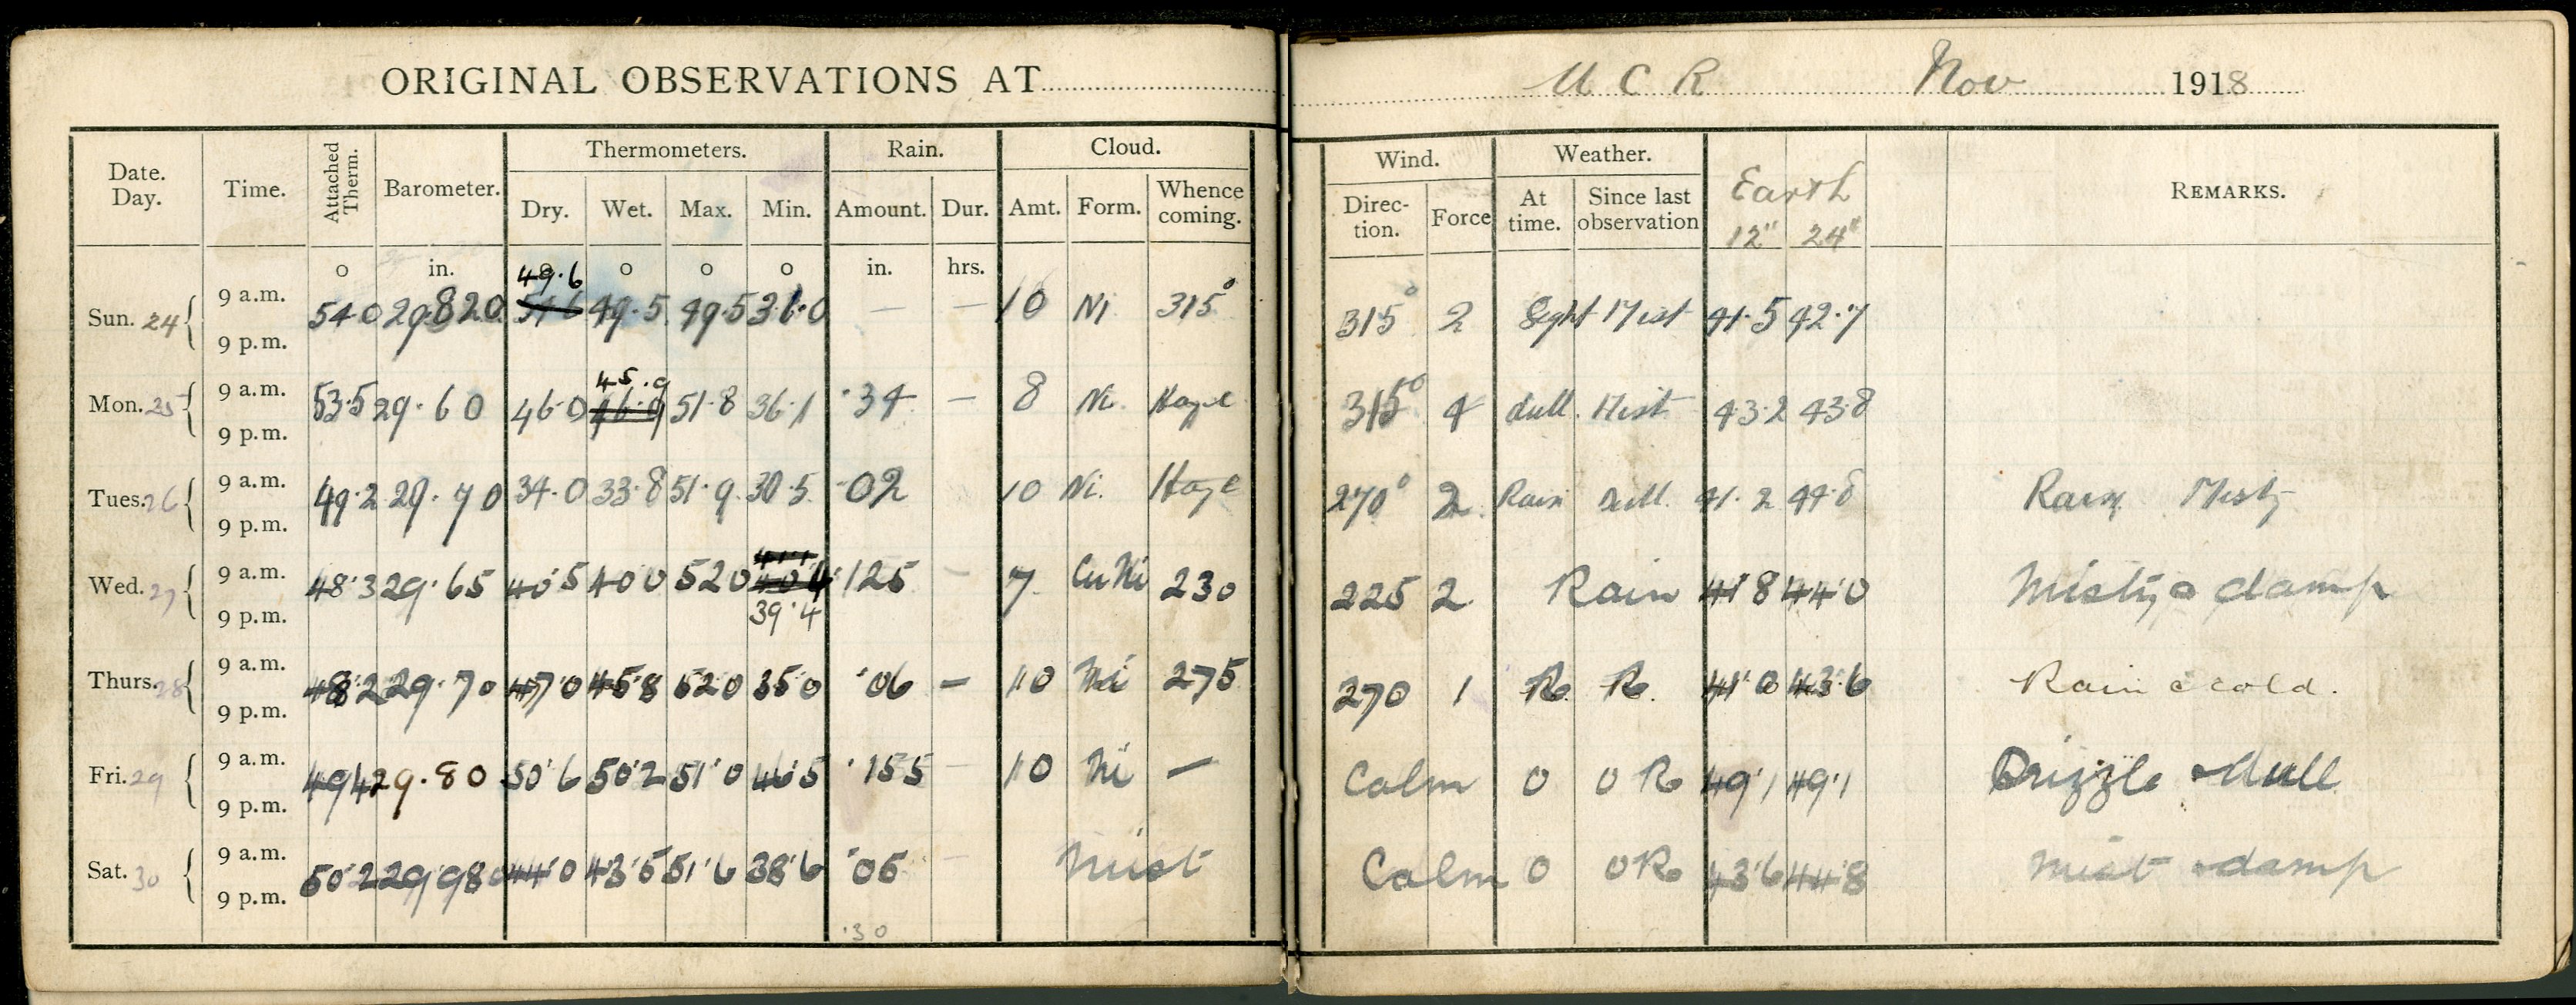 ORIGINAL OBSERVATIONS AT U C R Nov 1918
Date. Day. Time. Attached Therm. Barometer. Thermometers. Rain. Cloud. Wind. Weather. Earth REMARKS.
Dry. Wet. Max. Min. Amount. Dur. Amt. Form. Whence coming. Direction. Force At time. Since last observation 12" 24"
o in. o o o o in. hrs.
49.6
Sun. 24 9 a.m. 54.0 29.820 54.6 49.5 49.5 31.0 — — 10 Ni 315° 315° 2 Mist 41.5 42.7
9 p.m.
45.9
Mon. 25 9 a.m. 53.5 29.60 46.0 46.9 51.8 36.1 .34 — 8 Ni. Haze 315° 4 dull. Mist 43.2 43.8
9 p.m.
Tues. 26 9 a.m. 49.2 29.70 34.0 33.8 51.9 30.5 .02 10 Ni. Haze 270° 2 Rain dull. 41.2 44.8 Rain Misty
9 p.m.
Wed. 27 9 a.m. 48.3 29.65 40.5 40.0 52.0 .125 — 7 Cu Ni 230 225 2 Rain 41.8 44.0 Misty & damp
9 p.m. 39.4
Thurs. 28 9 a.m. 48.2 29.70 47.0 45.8 52.0 35.0 .06 — 10 Ni 275 270 1 R. R. 41.0 43.6 Rain & cold.
9 p.m.
Fri. 29 9 a.m. 49.4 29.80 50.6 50.2 51.0 46.5 .155 — 10 Ni — Calm 0 0 R 49.1 49.1 Drizzle & dull
9 p.m.
Sat. 30 9 a.m. 50.2 29.980 44.0 43.5 51.6 38.6 .05 — Mist Calm 0 0 R 43.6 44.8 Mist & damp
9 p.m.
.30